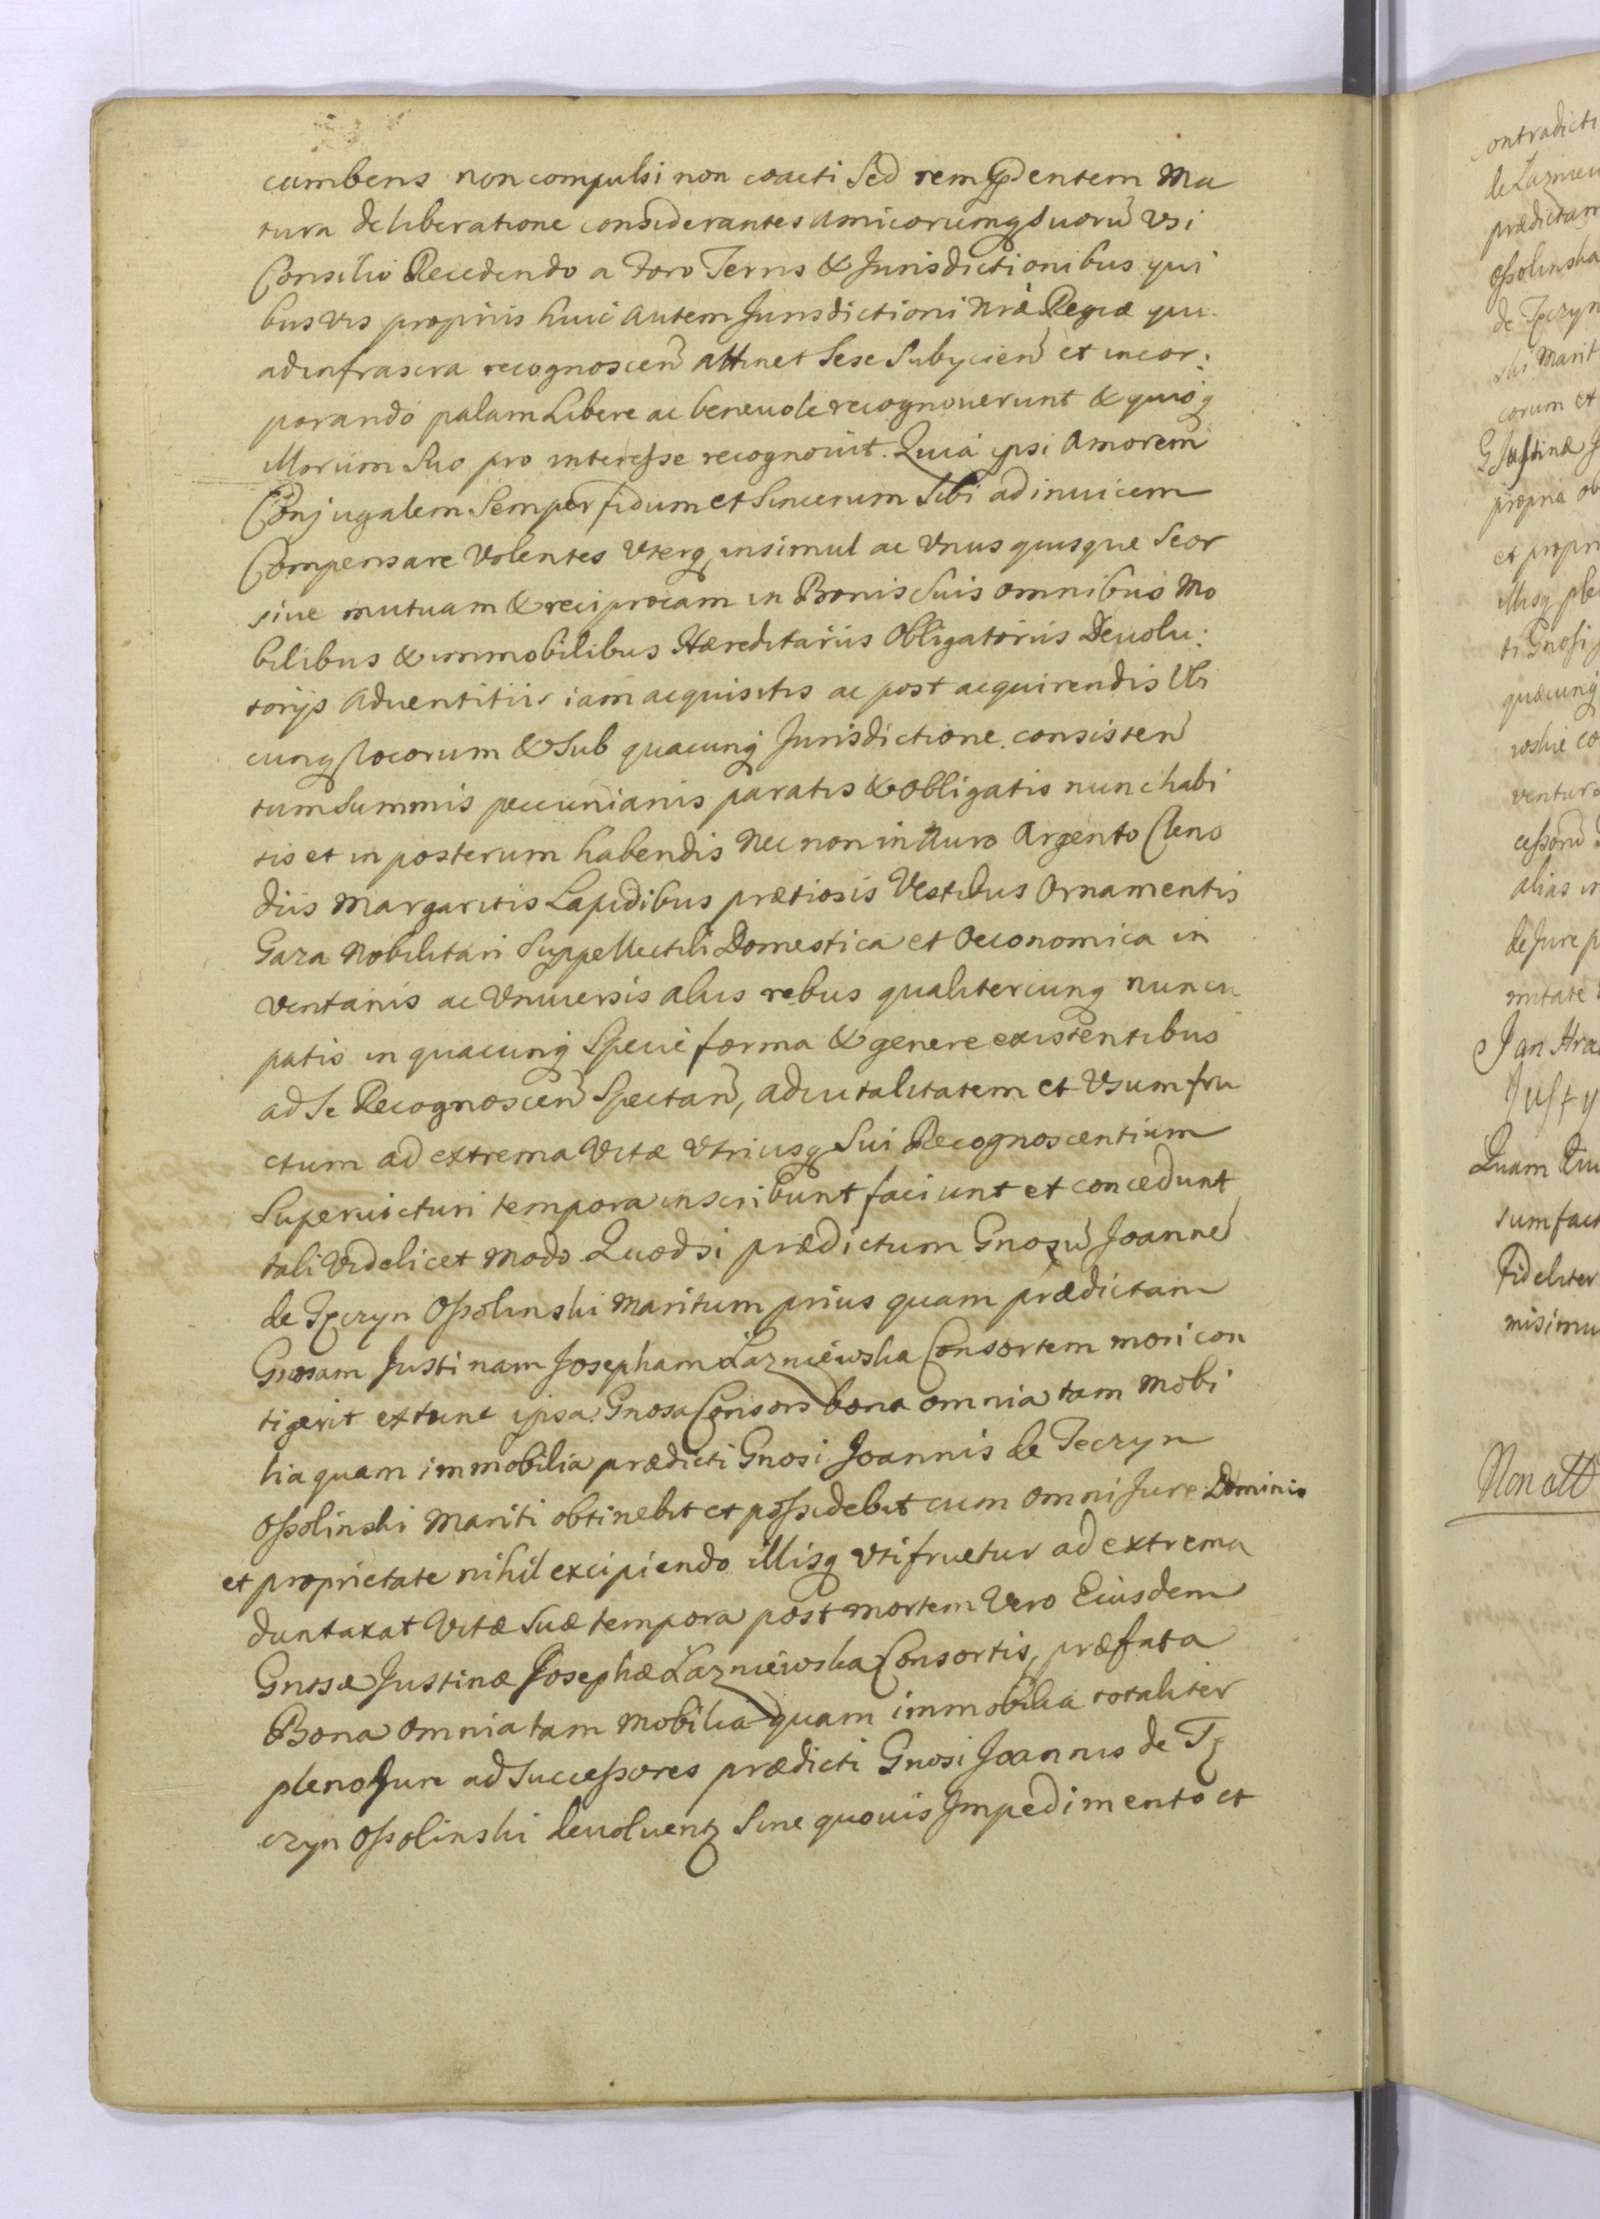 cumbens non compulsi non coacti Sed rem prudentem Ma
tura deliberatione considerantes amicorumq suorū Vsi
Consilio Recedendo a Foro Terris & Jurisdictionibus qui
busvis proprijs huic autem Jurisdictioni nrae Regiae qu
ad infrascra recognoscen attinet Sese Subijcien et incor:
porando palam Libere ac beneuole recognouerunt & quisq
illorum Suo pro interesse recognouit. Quia ipsi Amorem
Conjugalem Semper fidum et Sincerum Sibi ad inuicem
Compensare Volentes Vterq insimul ac Vnus quisque Seor
siue mutuam & reciprocam in Bonis Suis omnibus Mo
bilibus & immobilibus Haereditarijs Obligatorijs Deuolu:
torijs Aduentitijs iam acquisitis ac post acquirendis Vbi
cunq locorum & Sub quacunq Jurisdictione consisten
tum Summis pecuniarijs paratis & obligatis nunc habi
tis et in posterum habendis Nec non in Auro Argento Cleno
dijs Margaritis Lapidibus praetiosis Vestibus Ornamentis
Gaza Nobilitari Suppellectili Domestica et Oeconomica in
ventarijs ac Vniuersis alijs rebus qualitercunq nuncu
patis in quacunq Specie forma & genere existentibus
ad Se Recognoscen Spectan, aduitalitatem et Vsumfru
ctum ad extrema Vitae Vtriusq Sui Recognoscentium
Superuicturi tempora inscribunt faciunt et concedunt
tali Videlicet modo Quod si praedictum Gnosū Joanne
de Tęczyn Ossolinski Maritum prius quam praedictam
Gnosam Justinam Josepham Łazniewska Consortem mori con
tigerit extunc ipsa Gnosa Consors bona omnia tam Mobi
lia quam immobilia praedicti Gnosi Joannis de Teczyn
Ossolinski Mariti obtinebit et possidebit cum omni Jure Dominio
et proprietate nihil excipiendo illisq Vtifruetur ad extrema
duntaxat Vitae Suae tempora post mortem Vero Eiusdem
Gnosae Justinae Josephae Łazniewska Consortis, praefata
Bona omnia tam Mobilia quam immobilia totaliter
pleno Jure ad Successores praedicti Gnosi Joannis de Tę
czyn Ossolinski deuoluentq Sine quouis Impedimento et
ontradicti
de Łazniew
praedictam
Ossolinska
de Tęczyn
Marit
corum et
Justinae J
propria ob
et propri
illisq ple
ti Gnosi
quacunq
wskie co
ventur
cessorū
alias in
de Jure p
Jan Hra
Justy
Quam
sum fact
Fideliter
misimu
Non